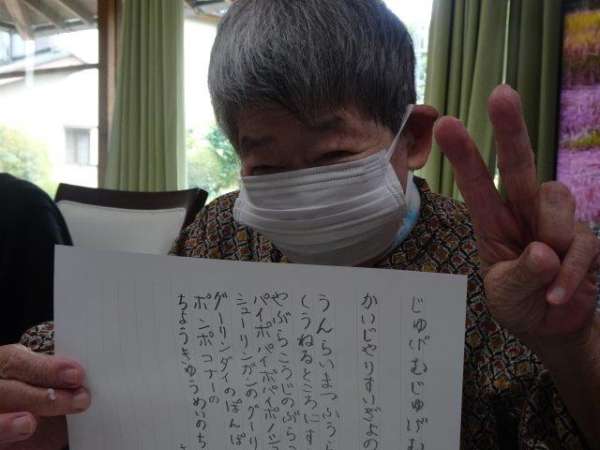 じゅげむじゅげむ
かいじゃりすいぎょの
うんらいまつふうら
くうねるところにす
やぶらこうじのぶら
パイポパイポパイポノシ
シューリンガンのグーリ
グーリンダイのぽんぽ
ポンポコナーの
ちょうきゅうめいのち